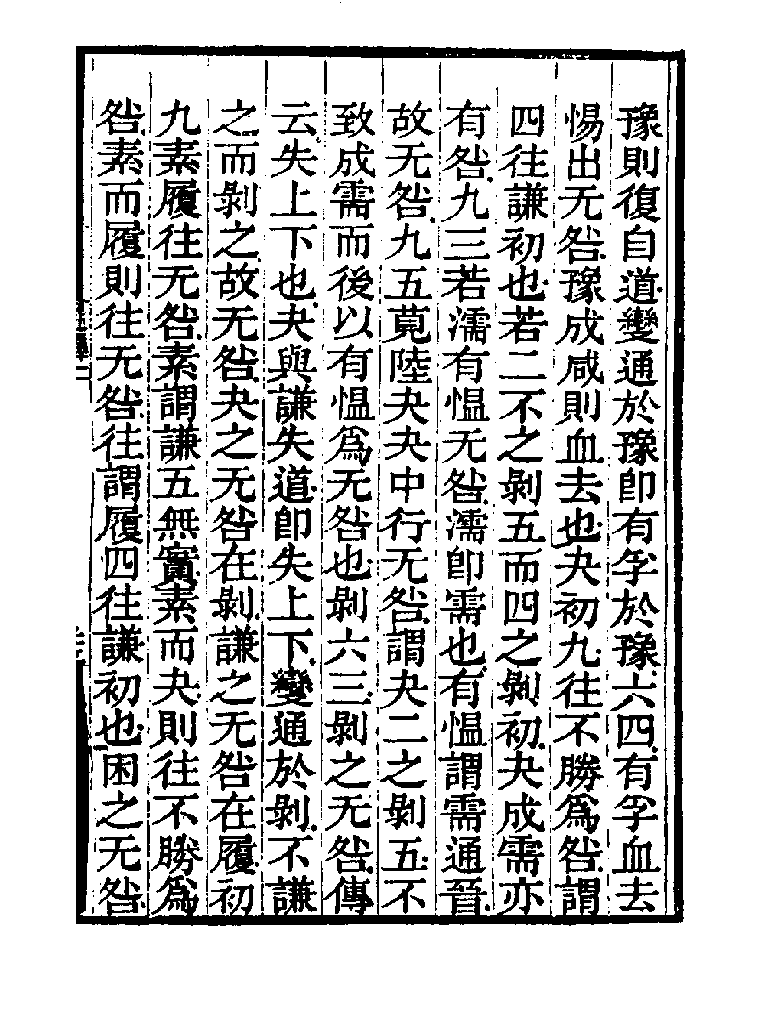 豫則復自道變通於豫卽有孚於豫六四有孚血去
惕出无咎豫成咸則血去也夬初九往不勝爲咎謂
四往謙初也若二不之剝五而四之剝初夬成需亦
有咎九三若濡有愠无咎濡卽需也有愠謂需通晉
故无咎九五莧陸夬夬中行无咎謂夬二之剝五不
致成需而後以有愠爲无咎也剝六三剝之无咎傳
云失上下也夬與謙失道卽失上下變通於剝不謙
之而剝之故无咎夬之无咎在剝謙之无咎在履初
九素履往无咎素謂謙五無實素而夬則往不勝爲
咎素而履則往无咎往謂履四往謙初也困之无咎